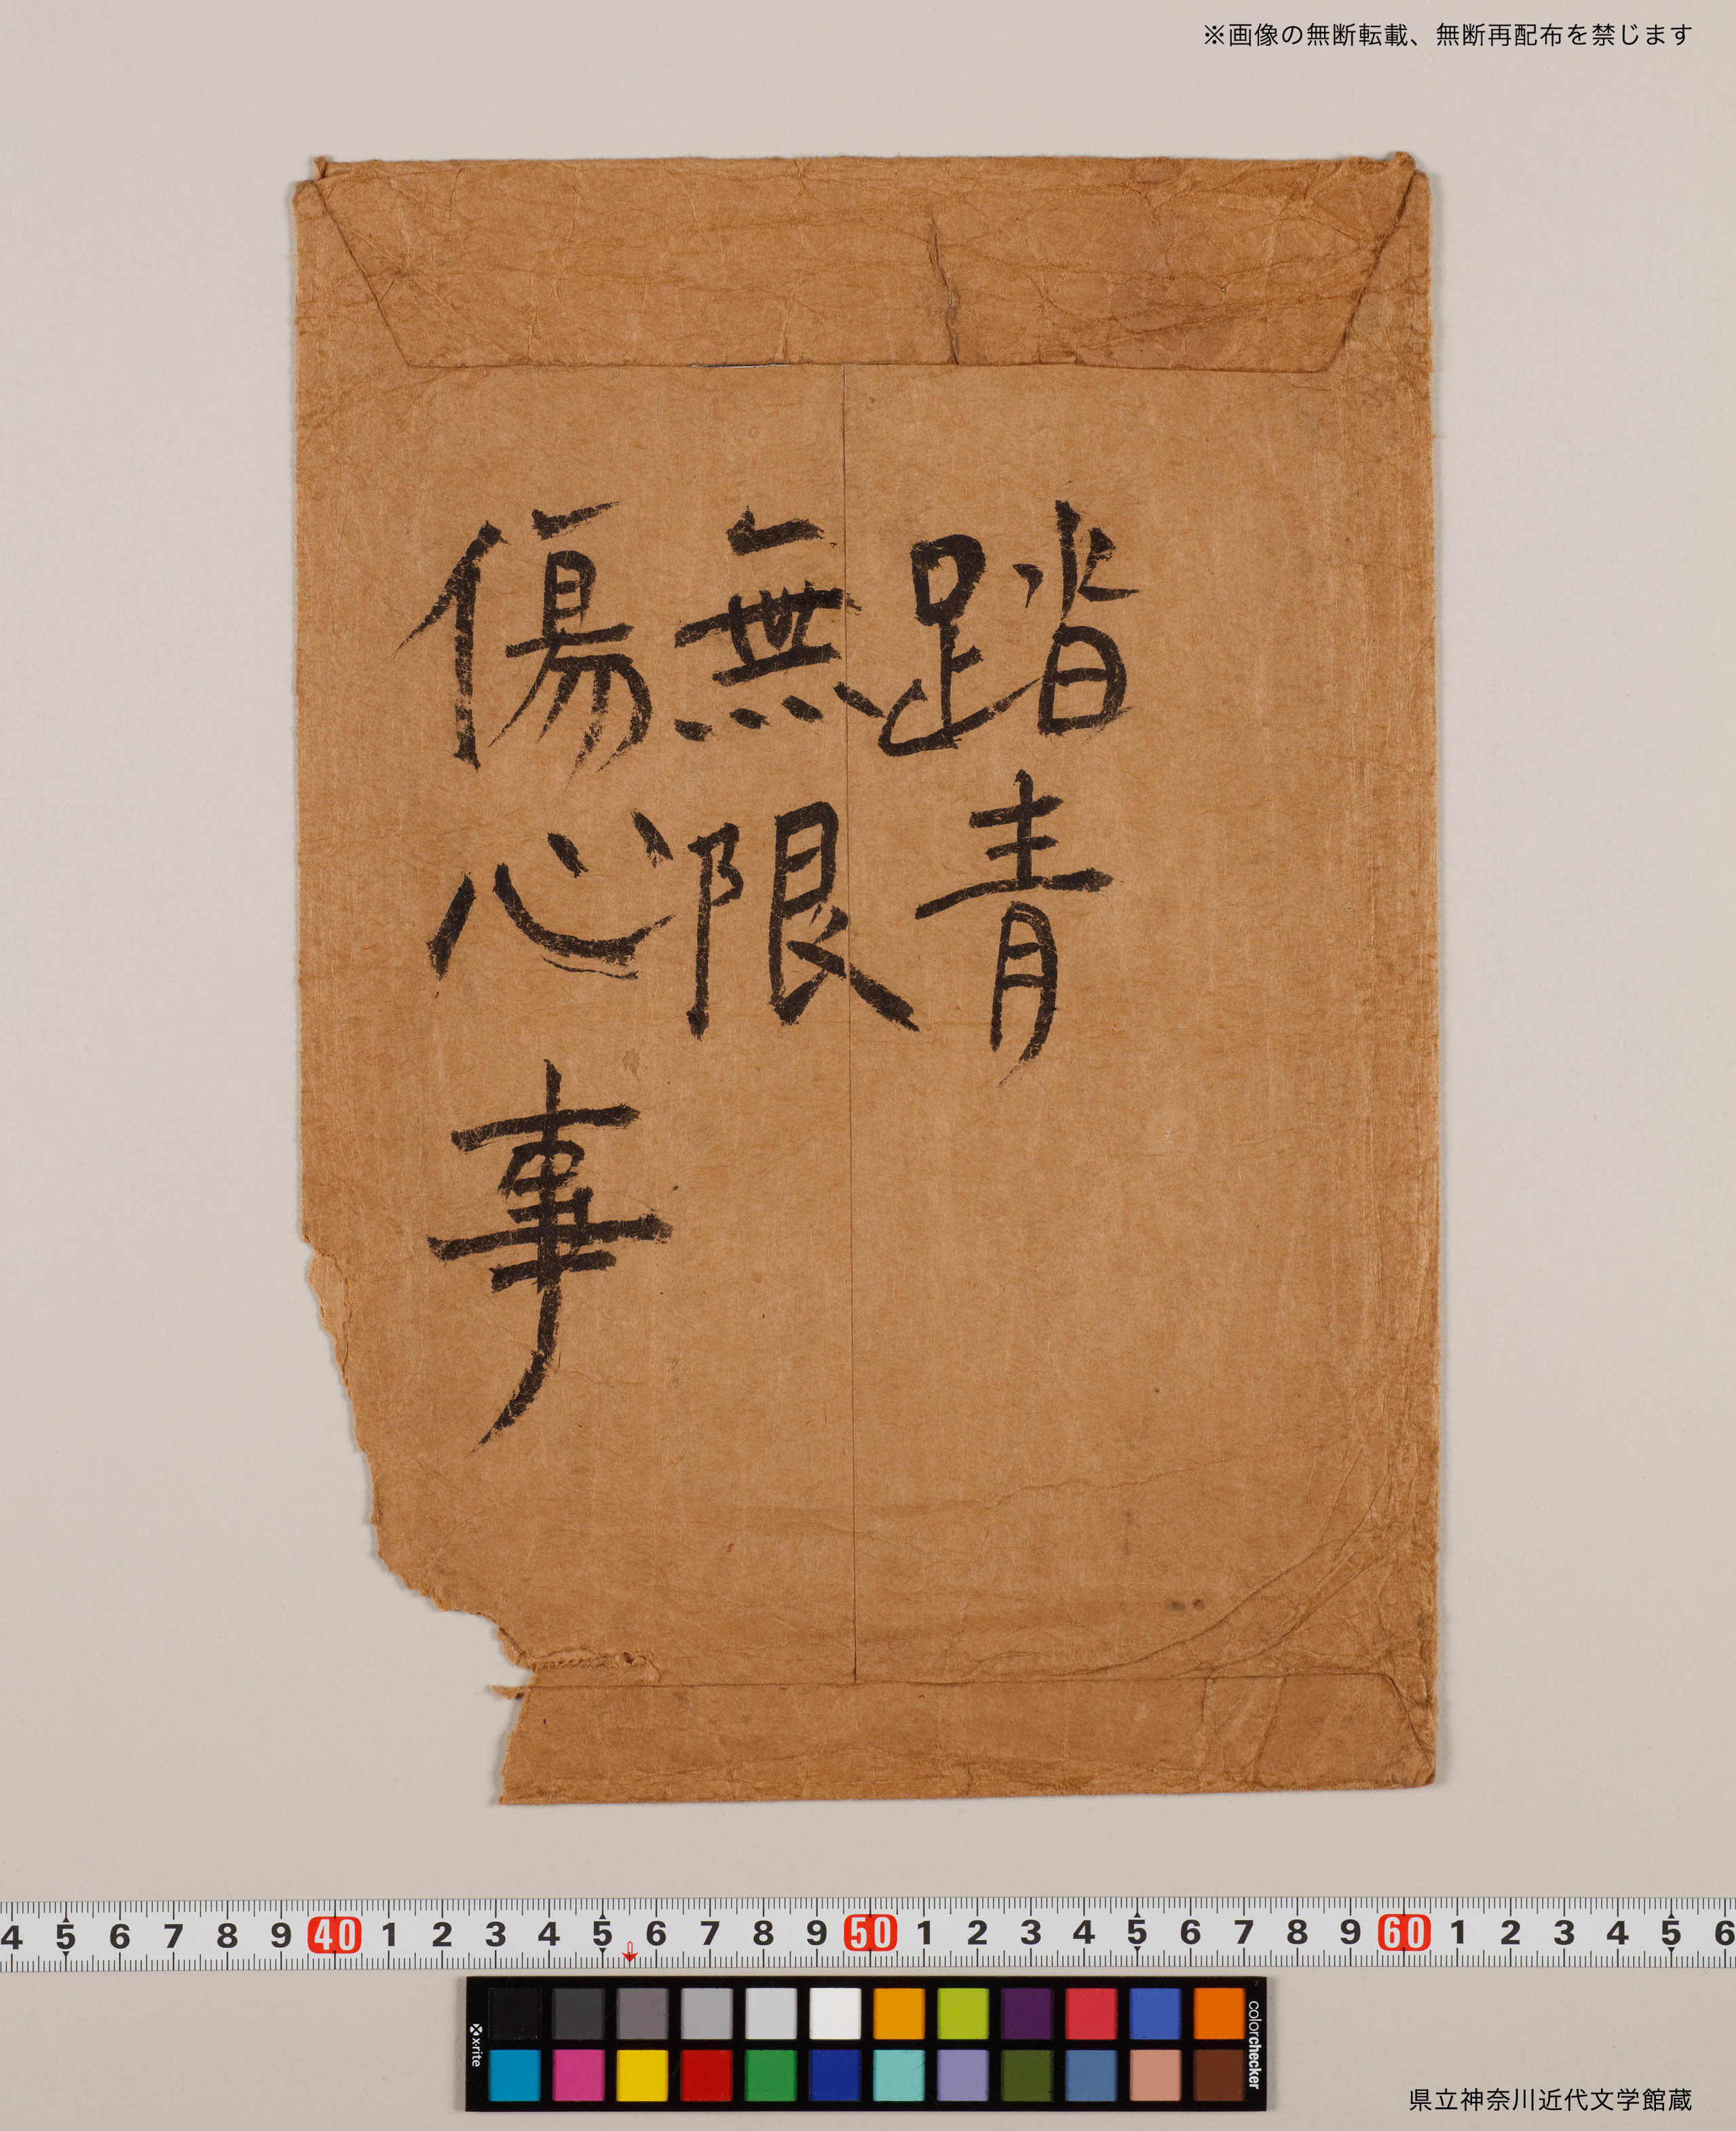 ※画像の無断転載、無断再配布を禁じます
踏青
無限
傷心事
4 5 6 7 8 9 40 1 2 3 4 5 6 7 8 9 50 1 2 3 4 5 6 7 8 9 60 1 2 3 4 5 6
x-rite
colorchecker
県立神奈川近代文学館蔵